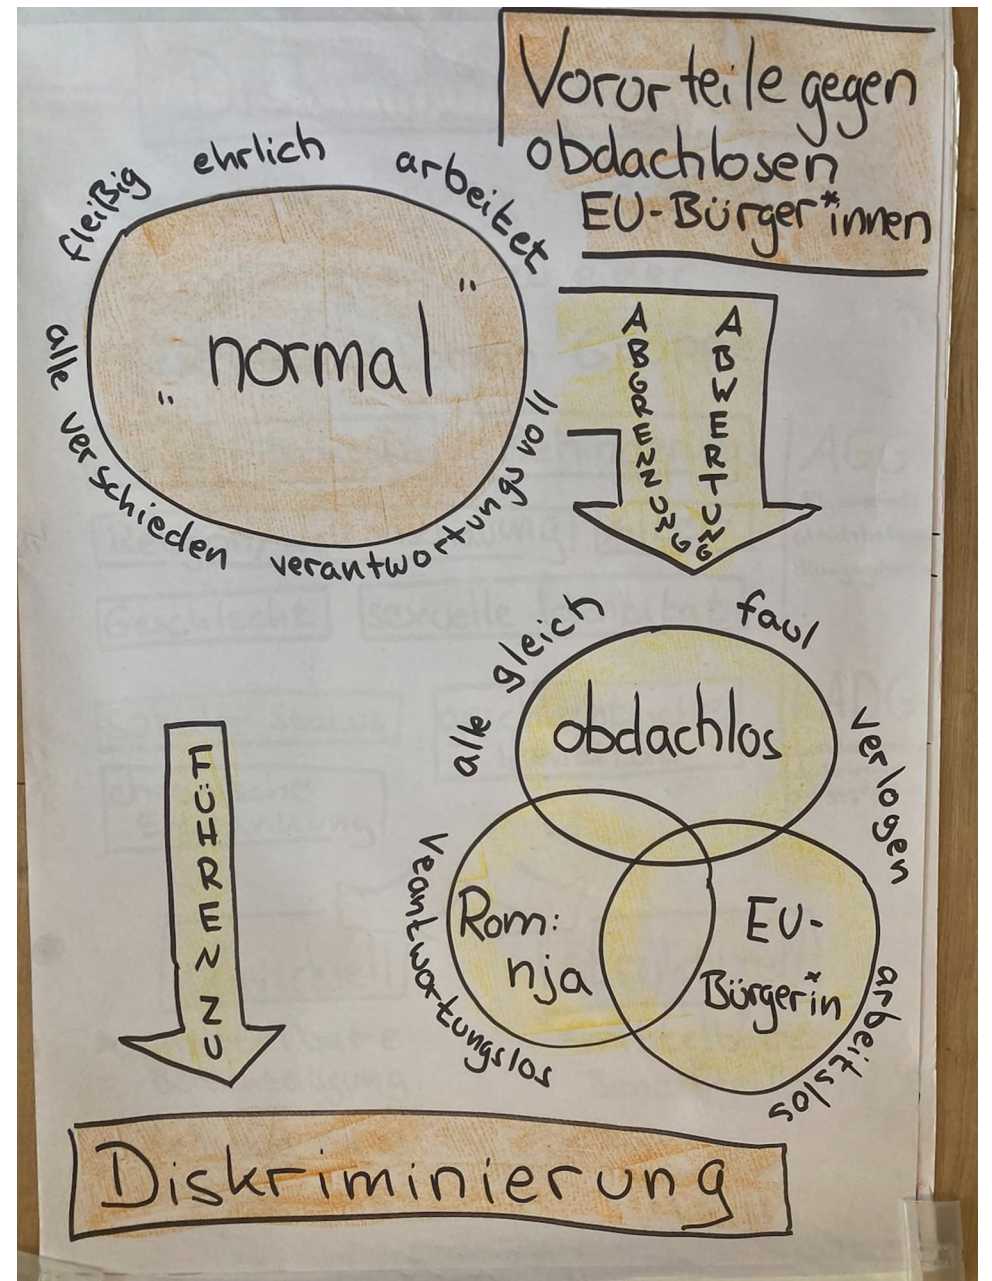 Vorurteile gegen
obdachlosen
EU-Bürger*innen
fleißig ehrlich arbeitet
„normal“
alle verschieden verantwortungsvoll
ABGRENZUNG
ABWERTUNG
alle gleich faul
obdachlos
verlogen
veantwortungslos
Rom:
nja
EU-
Bürger*in
arbeitslos
FÜHREN ZU
Diskriminierung